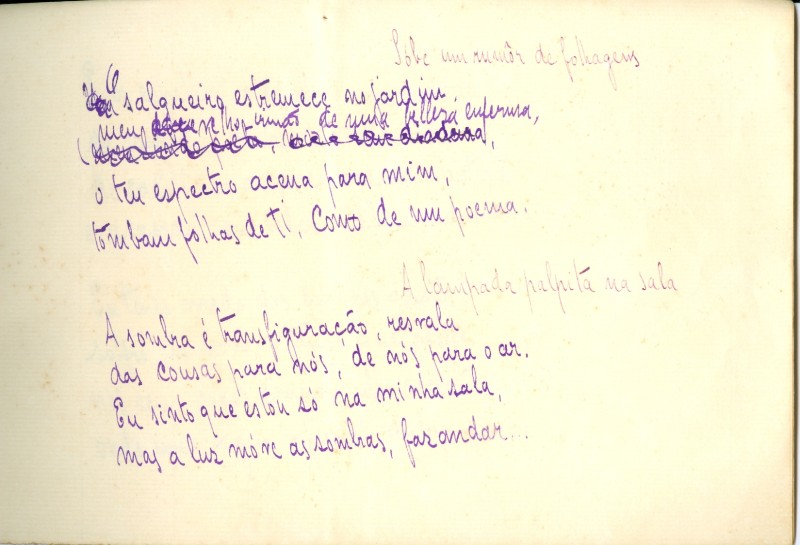 Sóbe um rumôr de folhagens
O salgueiro estremece no jardim
meu irmão de uma belleza enferma,
o teu espectro acena para mim,
tombam folhas de ti. Como de um poema.
A lampada palpita na sala
A sombra é transfiguração, resvala
das cousas para nós, de nós para o ar.
Eu sinto que estou só na minha sala,
mas a luz móve as sombras, faz andar...